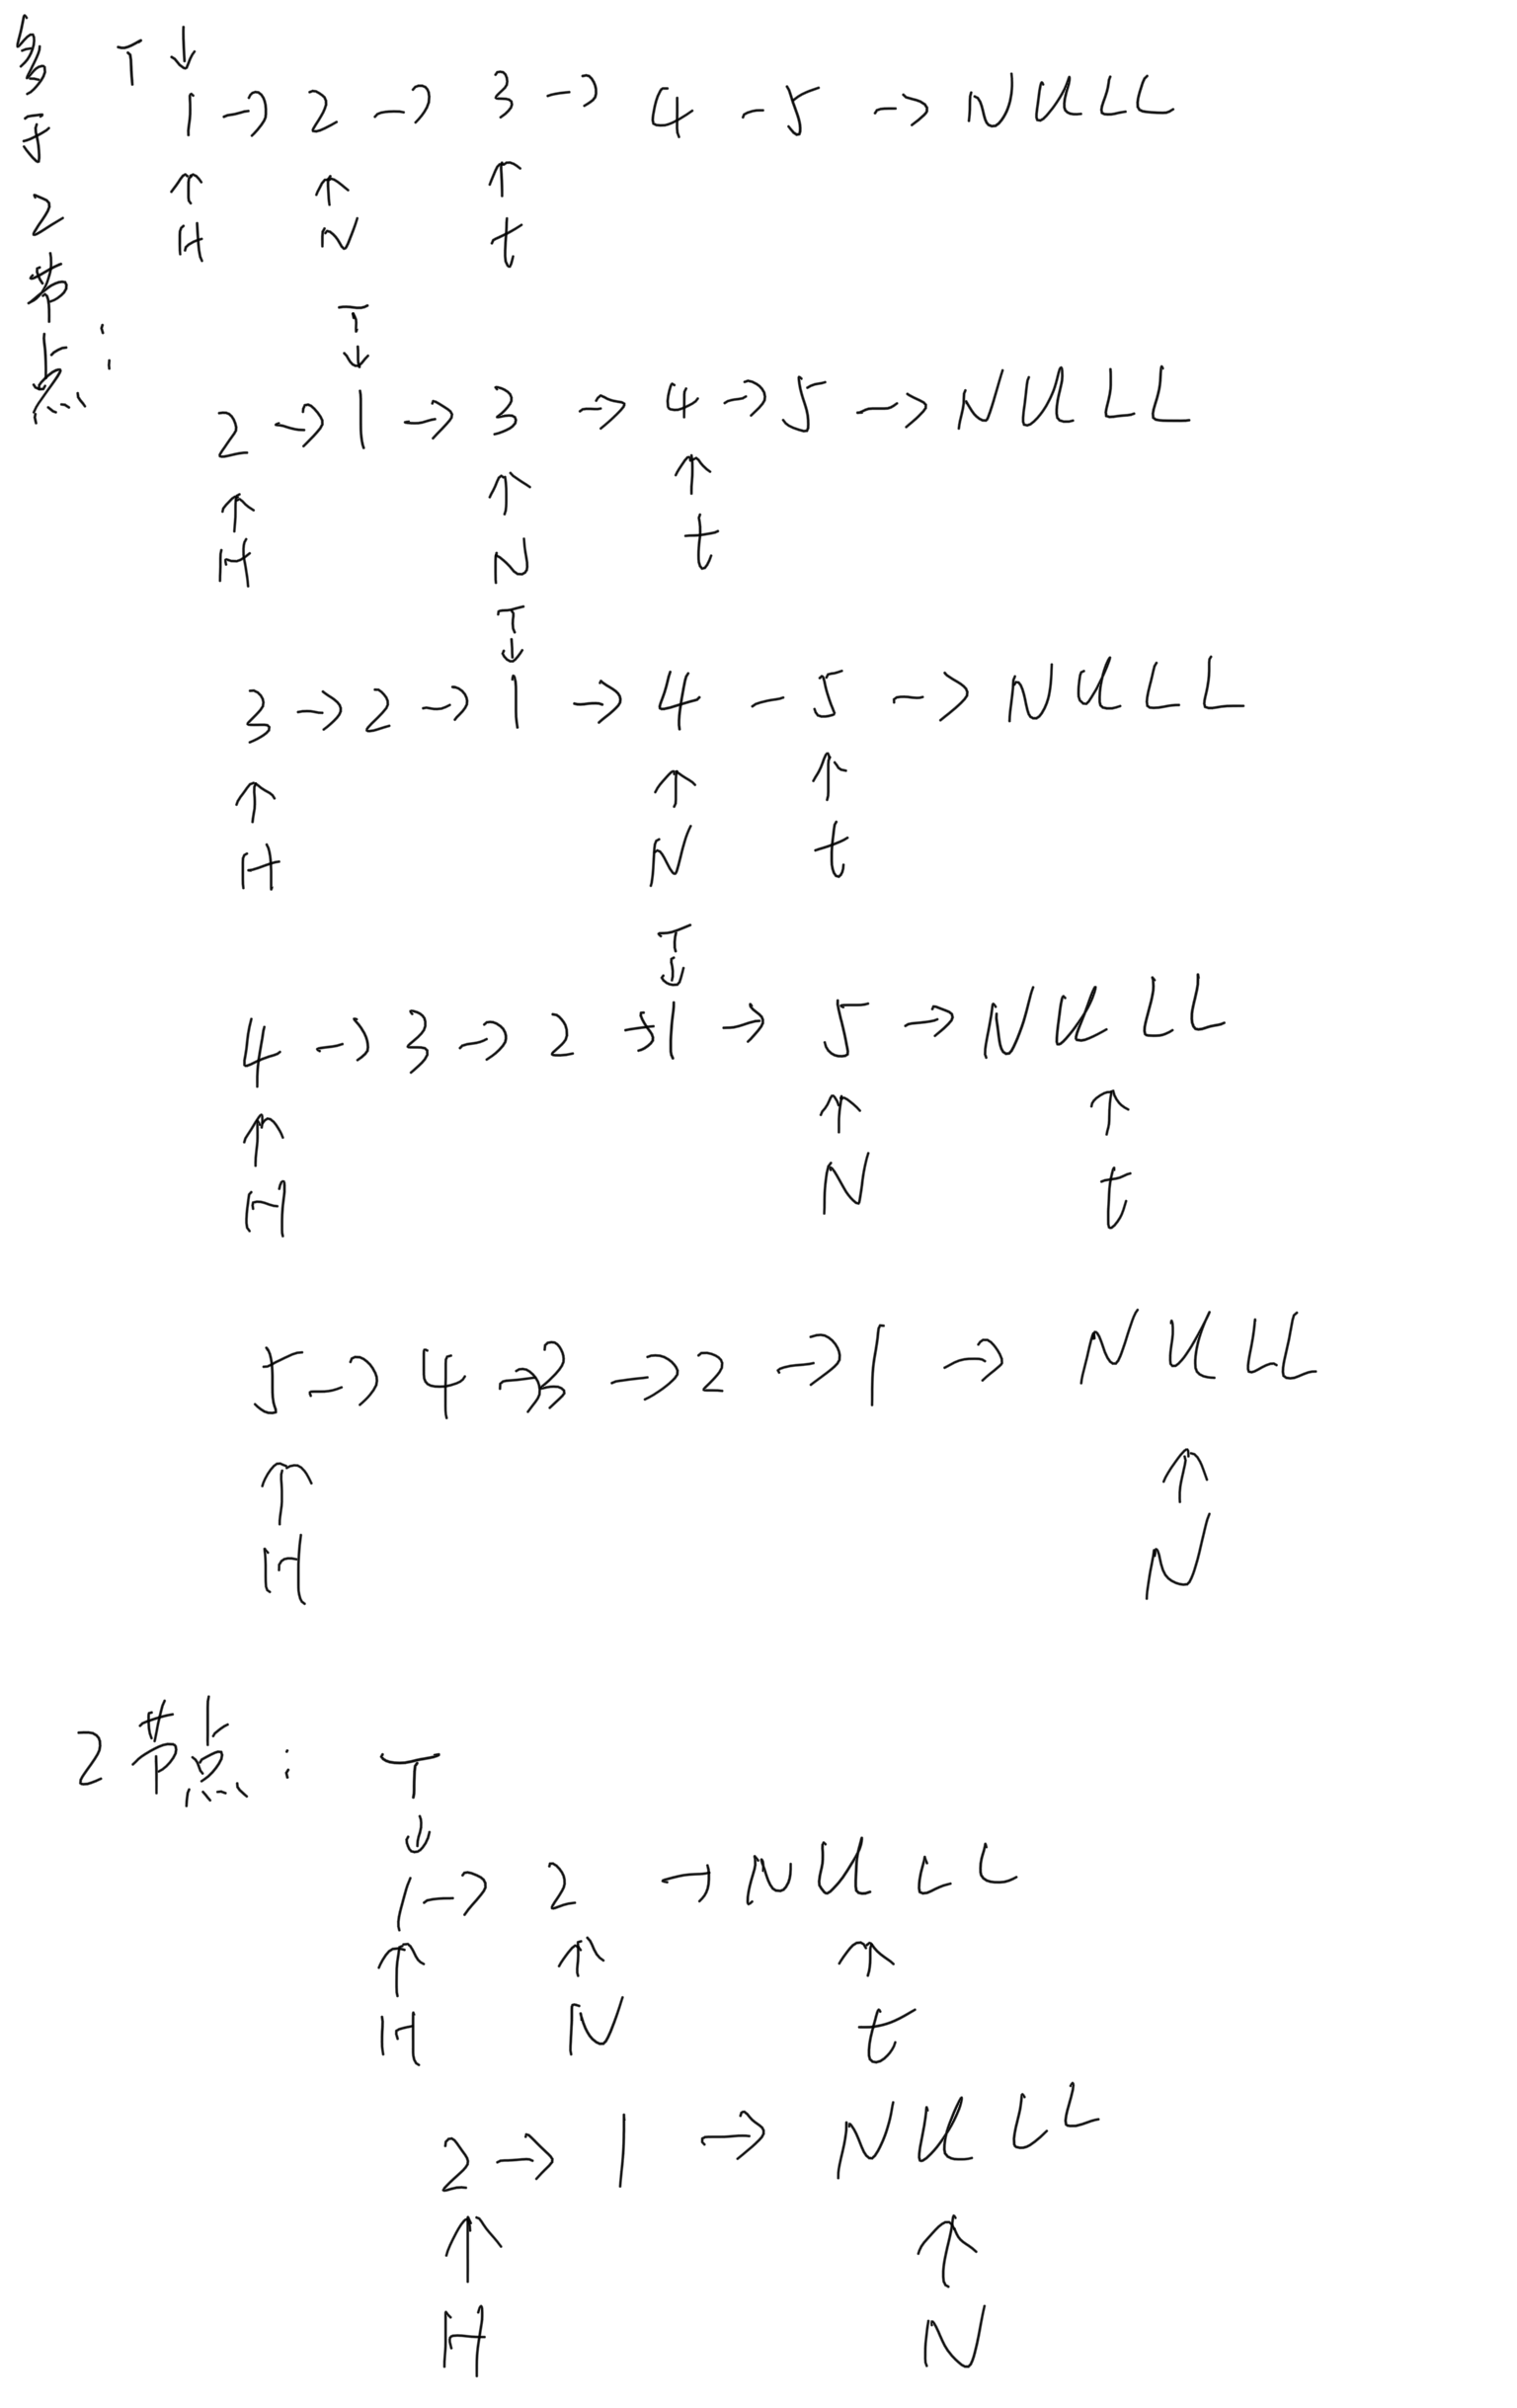 多于2节点:
T↓
1→2→3→4→5→NULL
↑ ↑ ↑
H N t
T
↓
2→1→3→4→5→NULL
↑ ↑ ↑
H N t
T
↓
3→2→1→4→5→NULL
↑ ↑ ↑
H N t
T
↓
4→3→2→1→5→NULL
↑ ↑ ↑
H N t
5→4→3→2→1→NULL
↑ ↑
H N
2节点: T
↓
1→2→NULL
↑ ↑ ↑
H N t
2→1→NULL
↑ ↑
H N